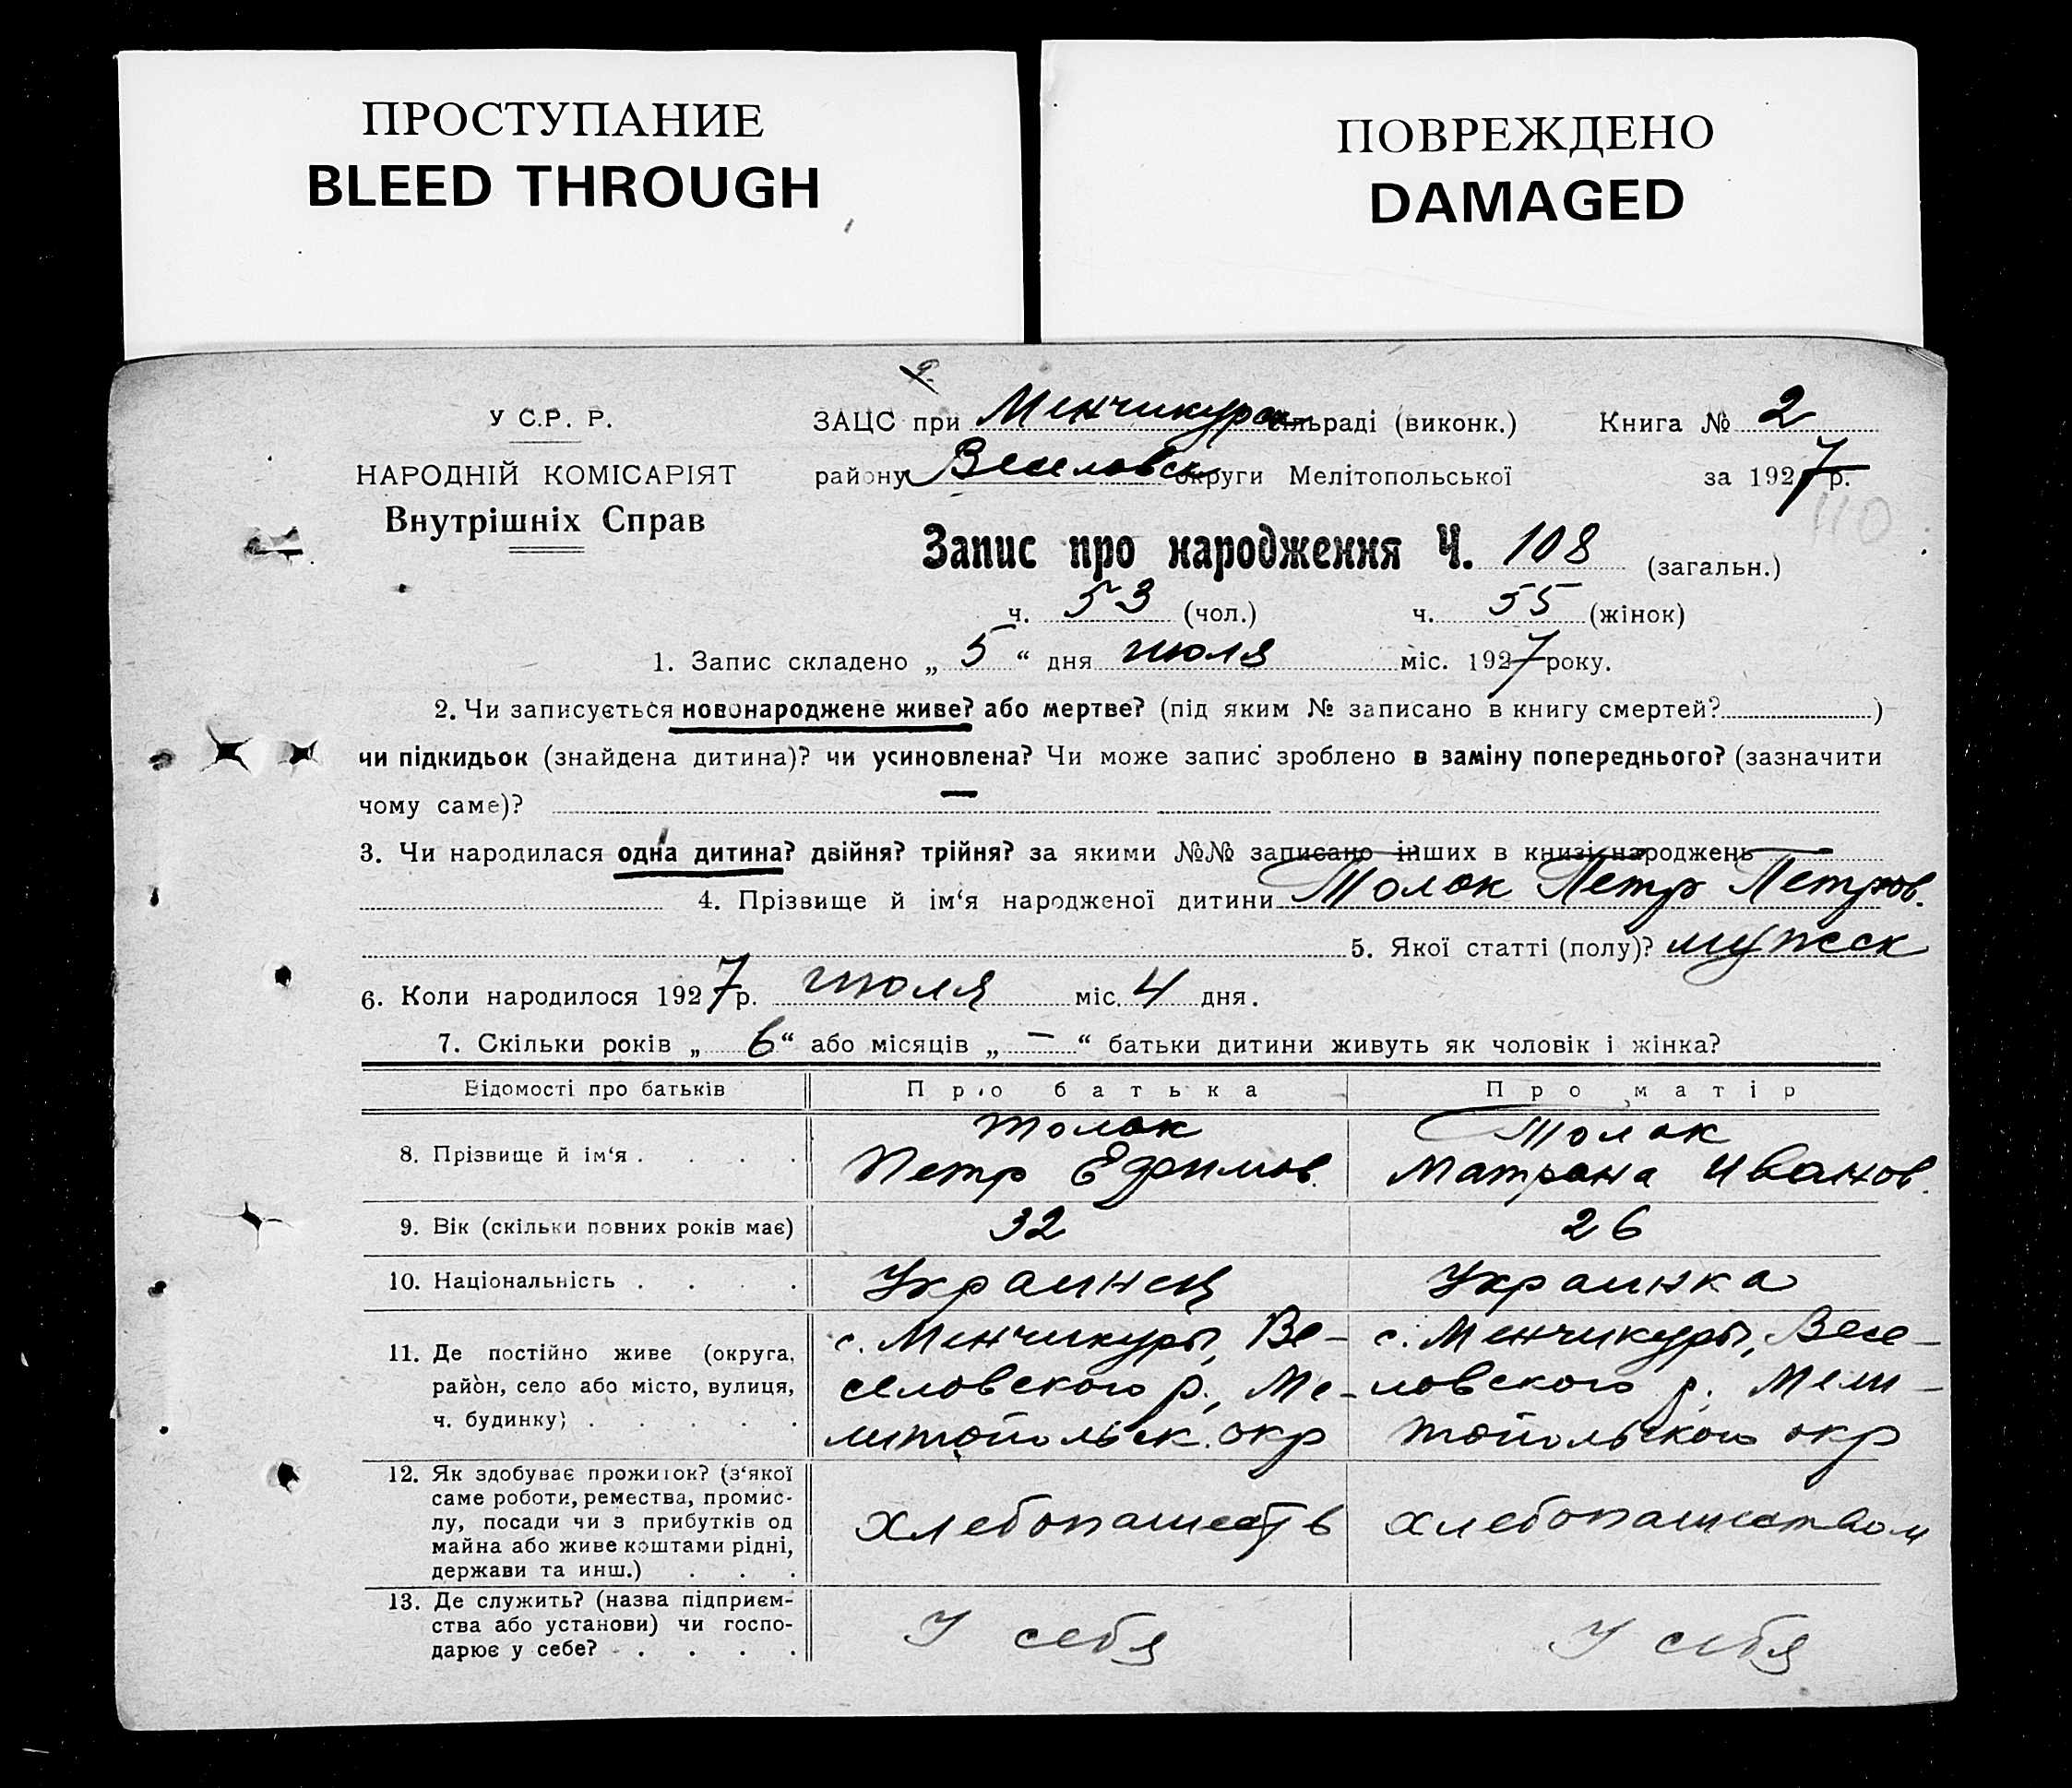 ПРОСТУПАНИЕ
BLEED THROUGH
ПОВРЕЖДЕНО
DAMAGED
У С.Р. Р.
НАРОДНІЙ КОМІСАРІЯТ
Внутрішніх Справ
ЗАЦС при Менчикурск сільраді (виконк.) Книга № 2
району Веселовск округи Мелітопольської за 1927 р.
110
Запис про народження Ч. 108 (загальн.)
ч. 53 (чол.) ч. 55 (жінок)
1. Запис складено „ 5 “ дня июля міс. 1927 року.
2. Чи записується новонароджене живе? або мертве? (під яким № записано в книгу смертей? )
чи підкидьок (знайдена дитина)? чи усиновлена? Чи може запис зроблено в заміну попереднього? (зазначити
чому саме)? —
3. Чи народилася одна дитина? двійня? трійня? за якими №№ записано інших в книзі народжень —
4. Прізвище й ім‘я народженої дитини Толок Петр Петров.
5. Якої статті (полу)? мужск
6. Коли народилося 1927 р. июля міс. 4 дня.
7. Скільки років „ 6 “ або місяців „ — “ батьки дитини живуть як чоловік і жінка?
Відомості про батьків Про батька Про матір
8. Прізвище й ім‘я . . . . Толок Петр Ефимов. Толок Матрона Иванов.
9. Вік (скільки повних років має) 32 26
10. Національність . . . . Украинец Украинка
11. Де постійно живе (округа, район, село або місто, вулиця, ч. будинку) . . . . .
с. Менчикуры, Ве-
селовского р., Ме-
литопольск. окр
с. Менчикуры, Весе-
ловского р. Мели-
топольского окр
12. Як здобуває прожиток? (з‘якої
саме роботи, ремества, промис-
лу, посади чи з прибутків од
майна або живе коштами рідні,
держави та инш.) . . .
хлебопашеств хлебопашеством
13. Де служить? (назва підприєм-
ства або установи) чи госпо-
дарює у себе? . . . . .
У себя У себя